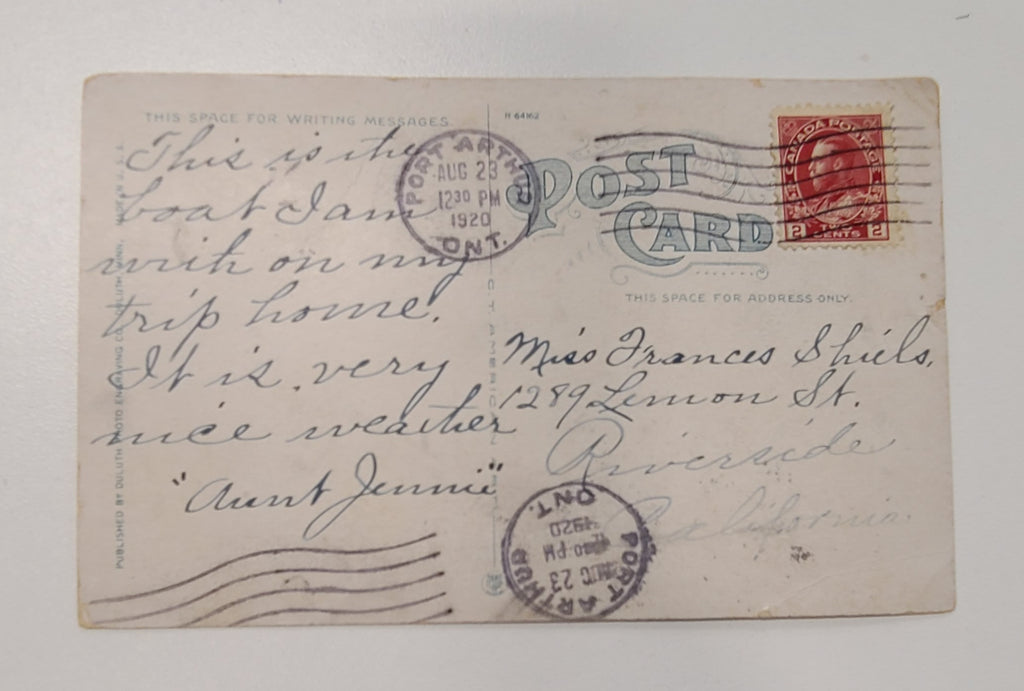 THIS SPACE FOR WRITING MESSAGES.
This is the
boat I am
with on my
trip home.
It is very
nice weather
"Aunt Jennie"
PUBLISHED BY DULUTH PHOTO ENGRAVING CO. DULUTH, MINN.
PORT ARTHUR
AUG 23
12 30 PM
1920
ONT.
H 64162
POST
CARD
CANADA POSTAGE
2 TWO CENTS 2
THIS SPACE FOR ADDRESS ONLY.
Miss Frances Shiels,
1289 Lemon St.
Riverside
California.
PORT ARTHUR
AUG 23
12 30 PM
1920
ONT.